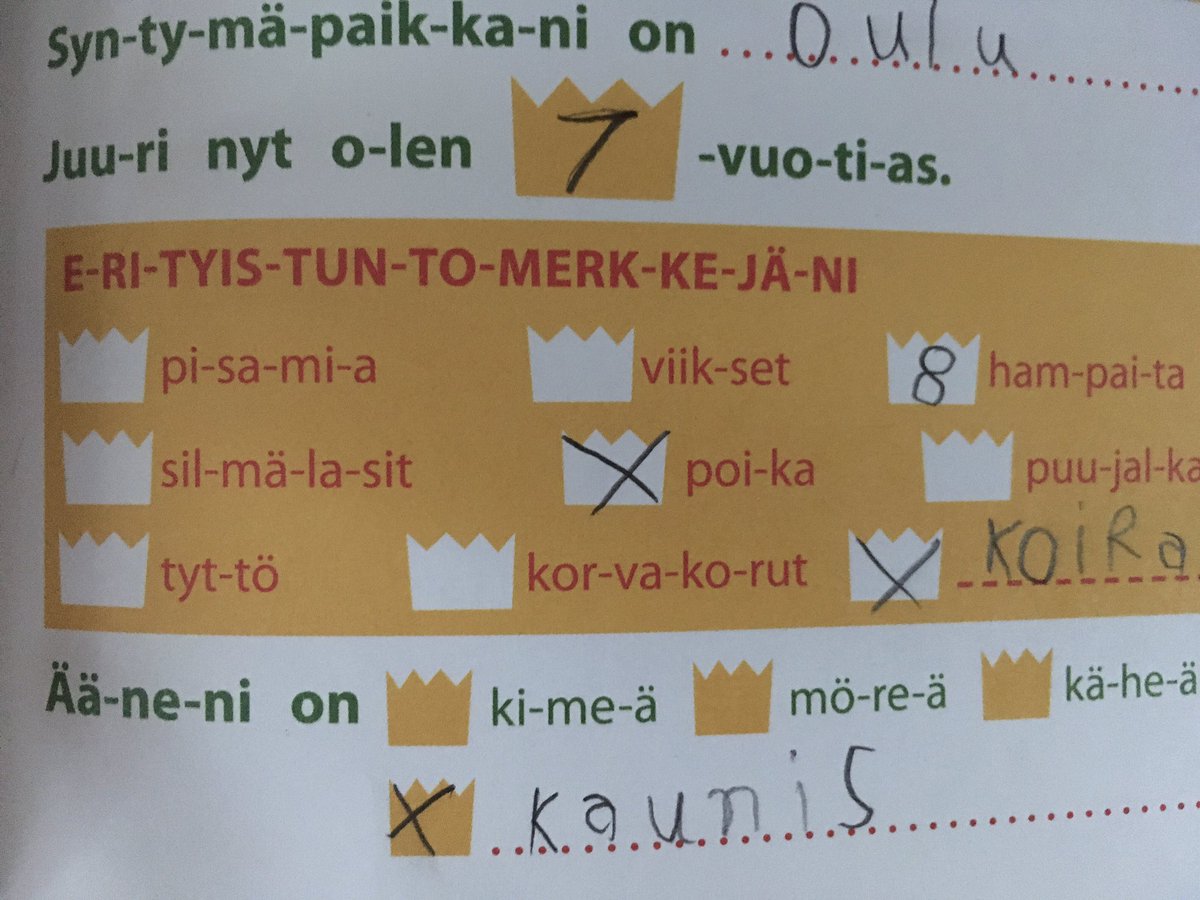 Syn-ty-mä-paik-ka-ni on oulu
Juu-ri nyt o-len 7 -vuo-ti-as.
E-RI-TYIS-TUN-TO-MERK-KE-JÄ-NI
pi-sa-mi-a viik-set 8 ham-pai-ta
sil-mä-la-sit X poi-ka puu-jal-ka
tyt-tö kor-va-ko-rut X KOiRa
Ää-ne-ni on ki-me-ä mö-re-ä kä-he-ä
X kauniS